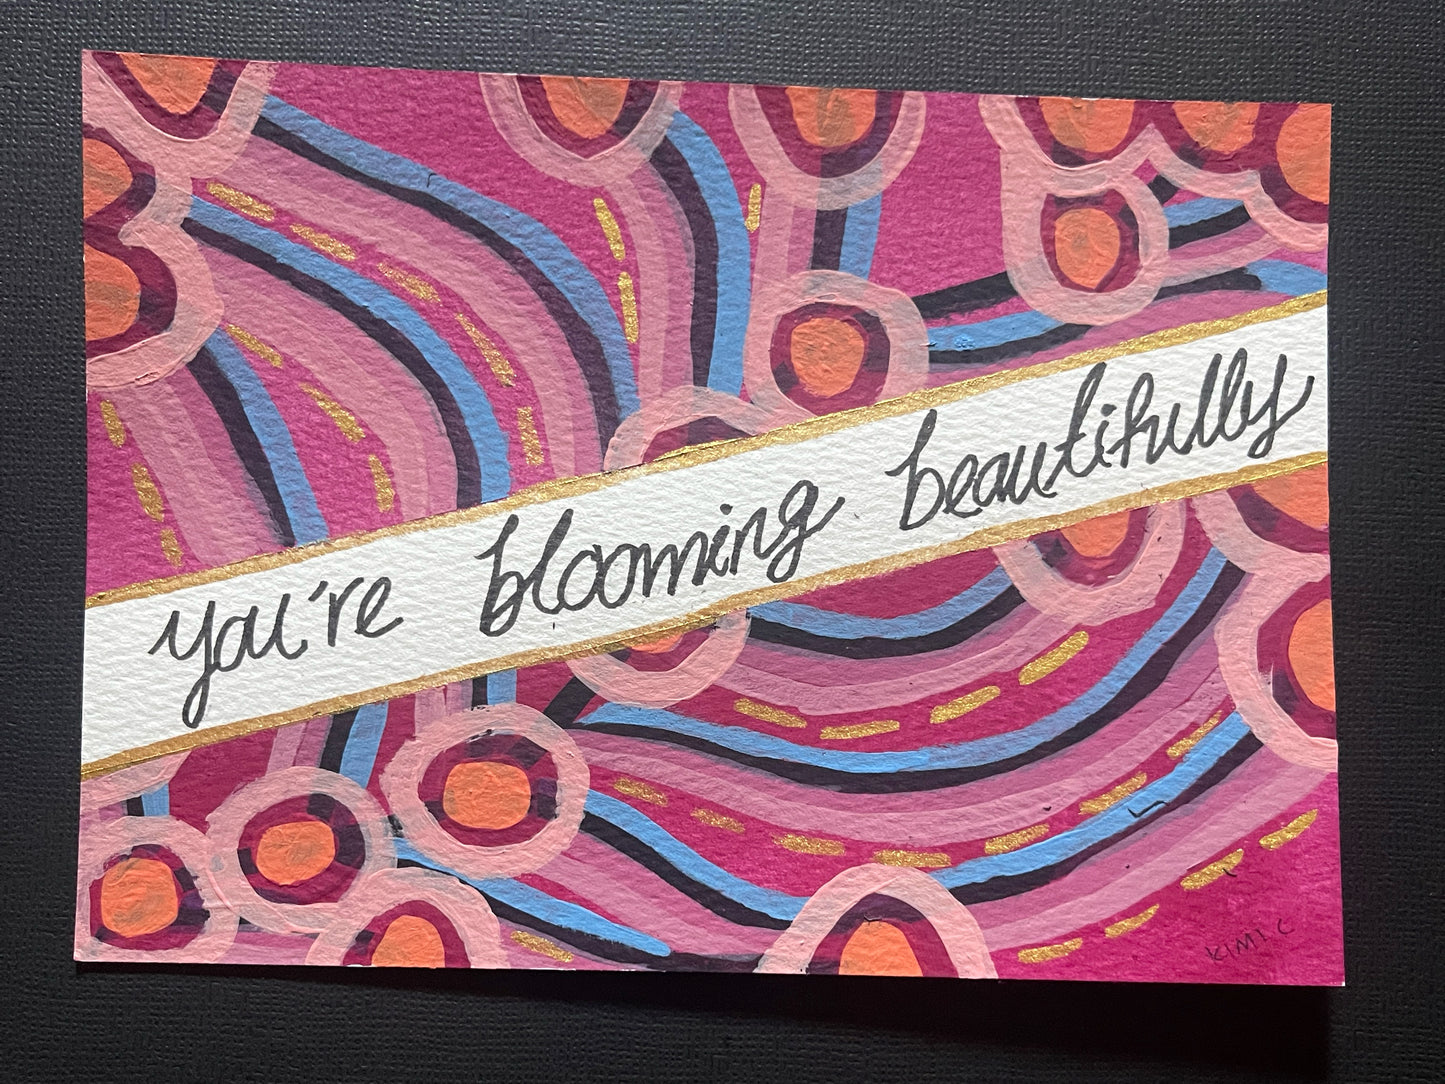 you're blooming beautifully
KIMI C